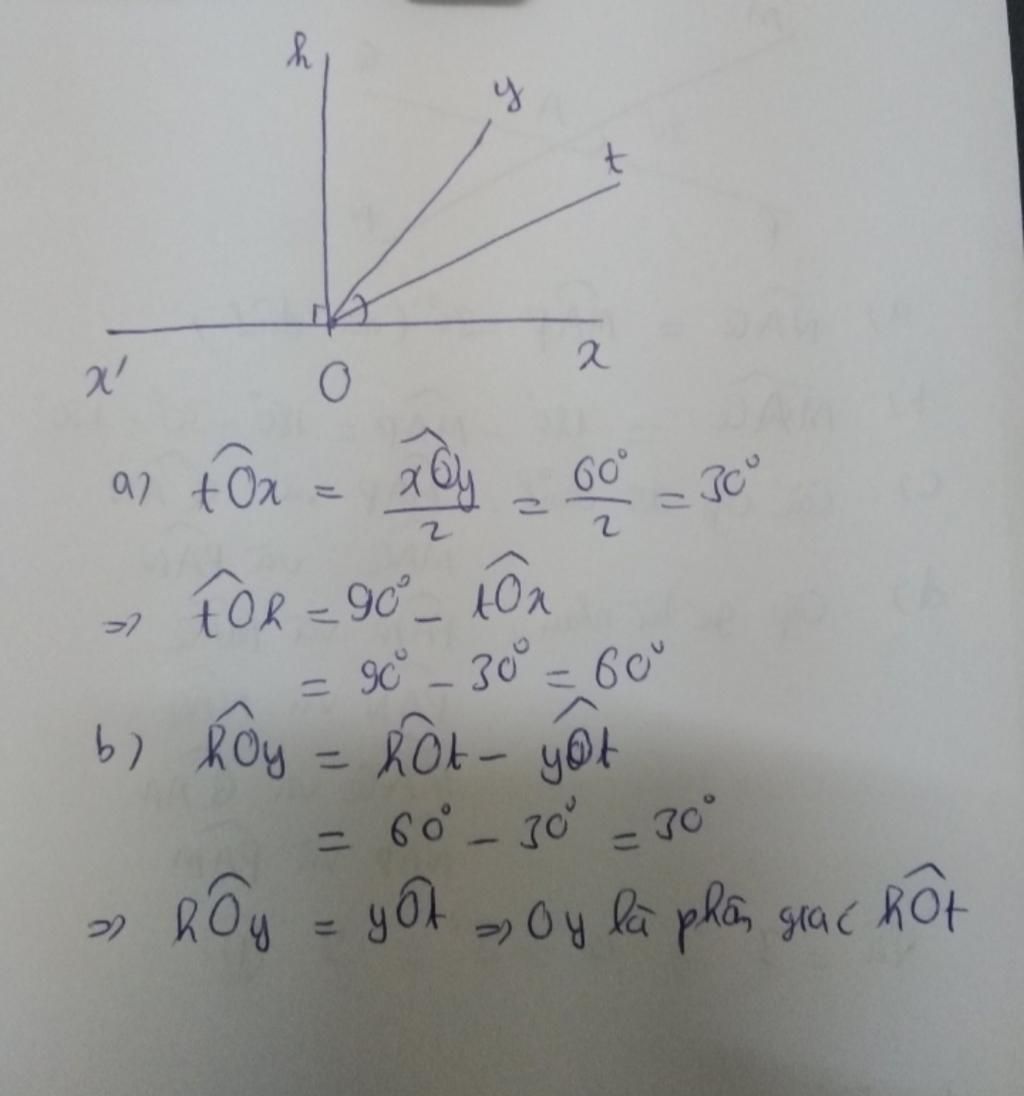 h
y
t
x'
O
x
a) tÔx = xÔy/2 = 60°/2 = 30°
=> tÔh = 90° - tÔx
= 90° - 30° = 60°
b) hÔy = hÔt - yÔt
= 60° - 30° = 30°
=> hÔy = yÔt => Oy là phân giác hÔt